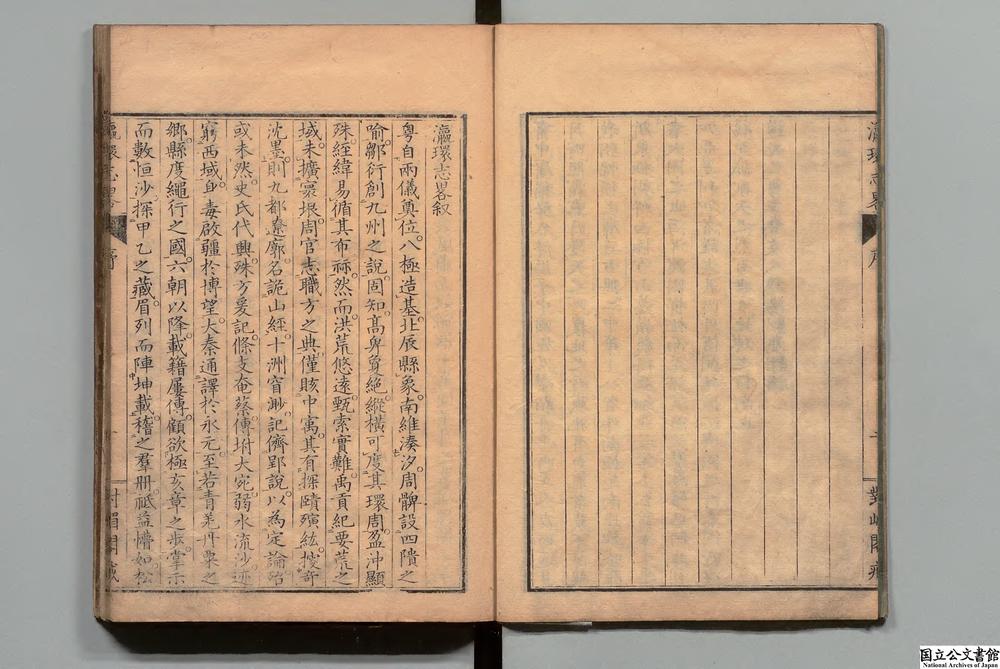 瀛環志畧叙
粤自兩儀奠位八極造基北辰縣象南維湊汐周髀設四隤之
喻鄒衍創九州之說固知高卑敻絶縱橫可度其環周盈沖顯
殊經緯易循其布祘然而洪荒悠遠甄索實難禹貢紀要荒之
域未擴寰垠周官志職方之典僅賅中寓其有探賾殯紘摉奇
沈墨則九都遼廓名詭山經十洲窅渺記儕郢說以為定論殆
或未然史氏代興殊方爰記條支奄蔡傳坿大宛弱水流沙迹
窮西域身毒啟疆於博望大秦通譯於永元至若青羌丹粟之
鄉縣度繩行之國六朝以降載籍屢傳顧欲極亥章之步掌示
而數恒沙探甲乙之藏眉列而陣坤載稽之羣册祗益懵如松
瀛環志畧
序
一
對嵋閣藏
瀛環志畧
序
對嵋閣藏
国立公文書館
National Archives of Japan